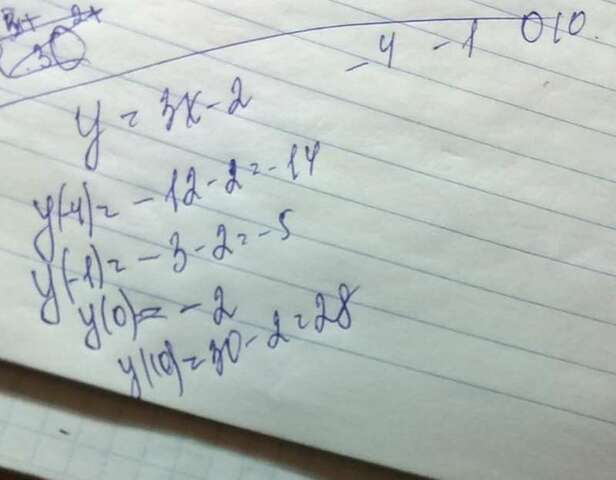 -4 -1 0 10.
30
y = 3x - 2
y(-4) = -12 - 2 = -14
y(-1) = -3 - 2 = -5
y(0) = -2
y(10) = 30 - 2 = 28